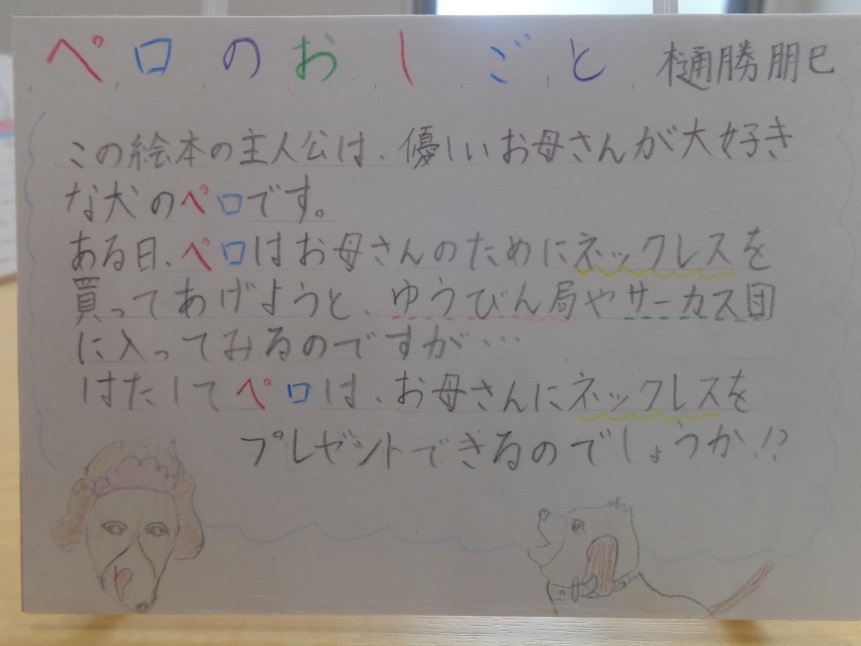 ペロのおしごと 樋勝朋巳
この絵本の主人公は、優しいお母さんが大好き
な犬のペロです。
ある日、ペロはお母さんのためにネックレスを
買ってあげようと、ゆうびん局やサーカス団
に入ってみるのですが…
はたしてペロは、お母さんにネックレスを
プレゼントできるのでしょうか!?